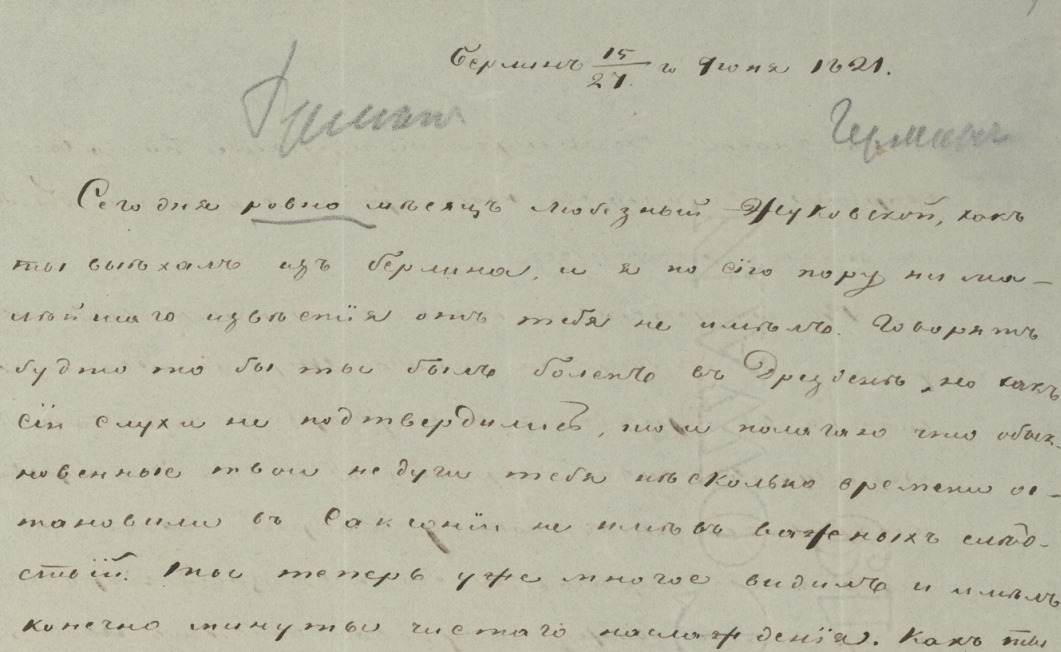 Берлинъ 15/27 го Июня 1821.
Сегодня ровно мѣсяцъ любезный Жуковской, какъ
ты выѣхалъ изъ берлина, и я по сiю пору ни ма-
лѣйшаго извѣстiя отъ тебя не имѣлъ. Говорятъ
будто то бы ты былъ боленъ въ Дрезденѣ, но какъ
сiи слухи не подтвердились, то и полагаю что обык-
новенные твои недуги тебя нѣсколько времени ос-
тановили въ Саксонiи не имѣвъ важныхъ слѣд-
ствiй. Ты теперь уже многое видилъ и имѣлъ
конечно минуты чистаго наслажденiя. Какъ ты